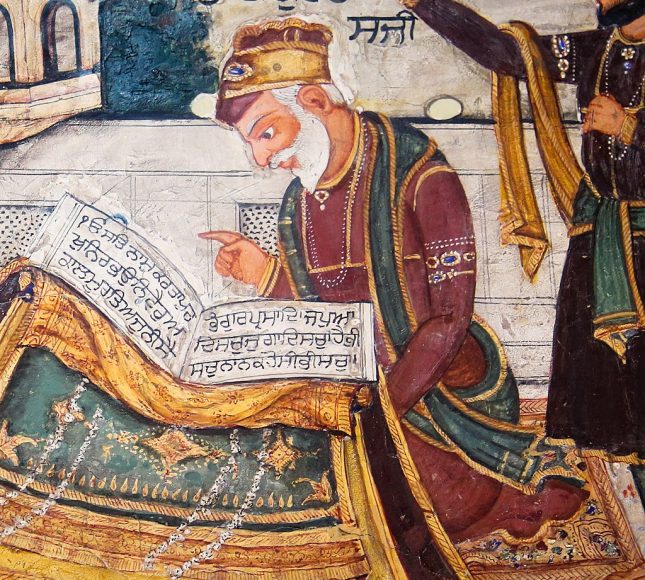 ਸਜੀ
ੴ ਸਤਿ ਨਾਮੁ ਕਰਤਾ ਪੁਰ
ਖੁ ਨਿਰਭਉ ਨਿਰਵੈਰੁ ਅ
ਕਾਲ ਮੂਰਤਿ ਅਜੂਨੀ ਸੈ
ਭੰ ਗੁਰਪ੍ਰਸਾਦਿ॥ ਜਪੁ॥ ਆ
ਦਿ ਸਚੁ ਜੁਗਾਦਿ ਸਚੁ ਹੈ ਭੀ
ਸਚੁ ਨਾਨਕ ਹੋਸੀ ਭੀ ਸਚੁ॥